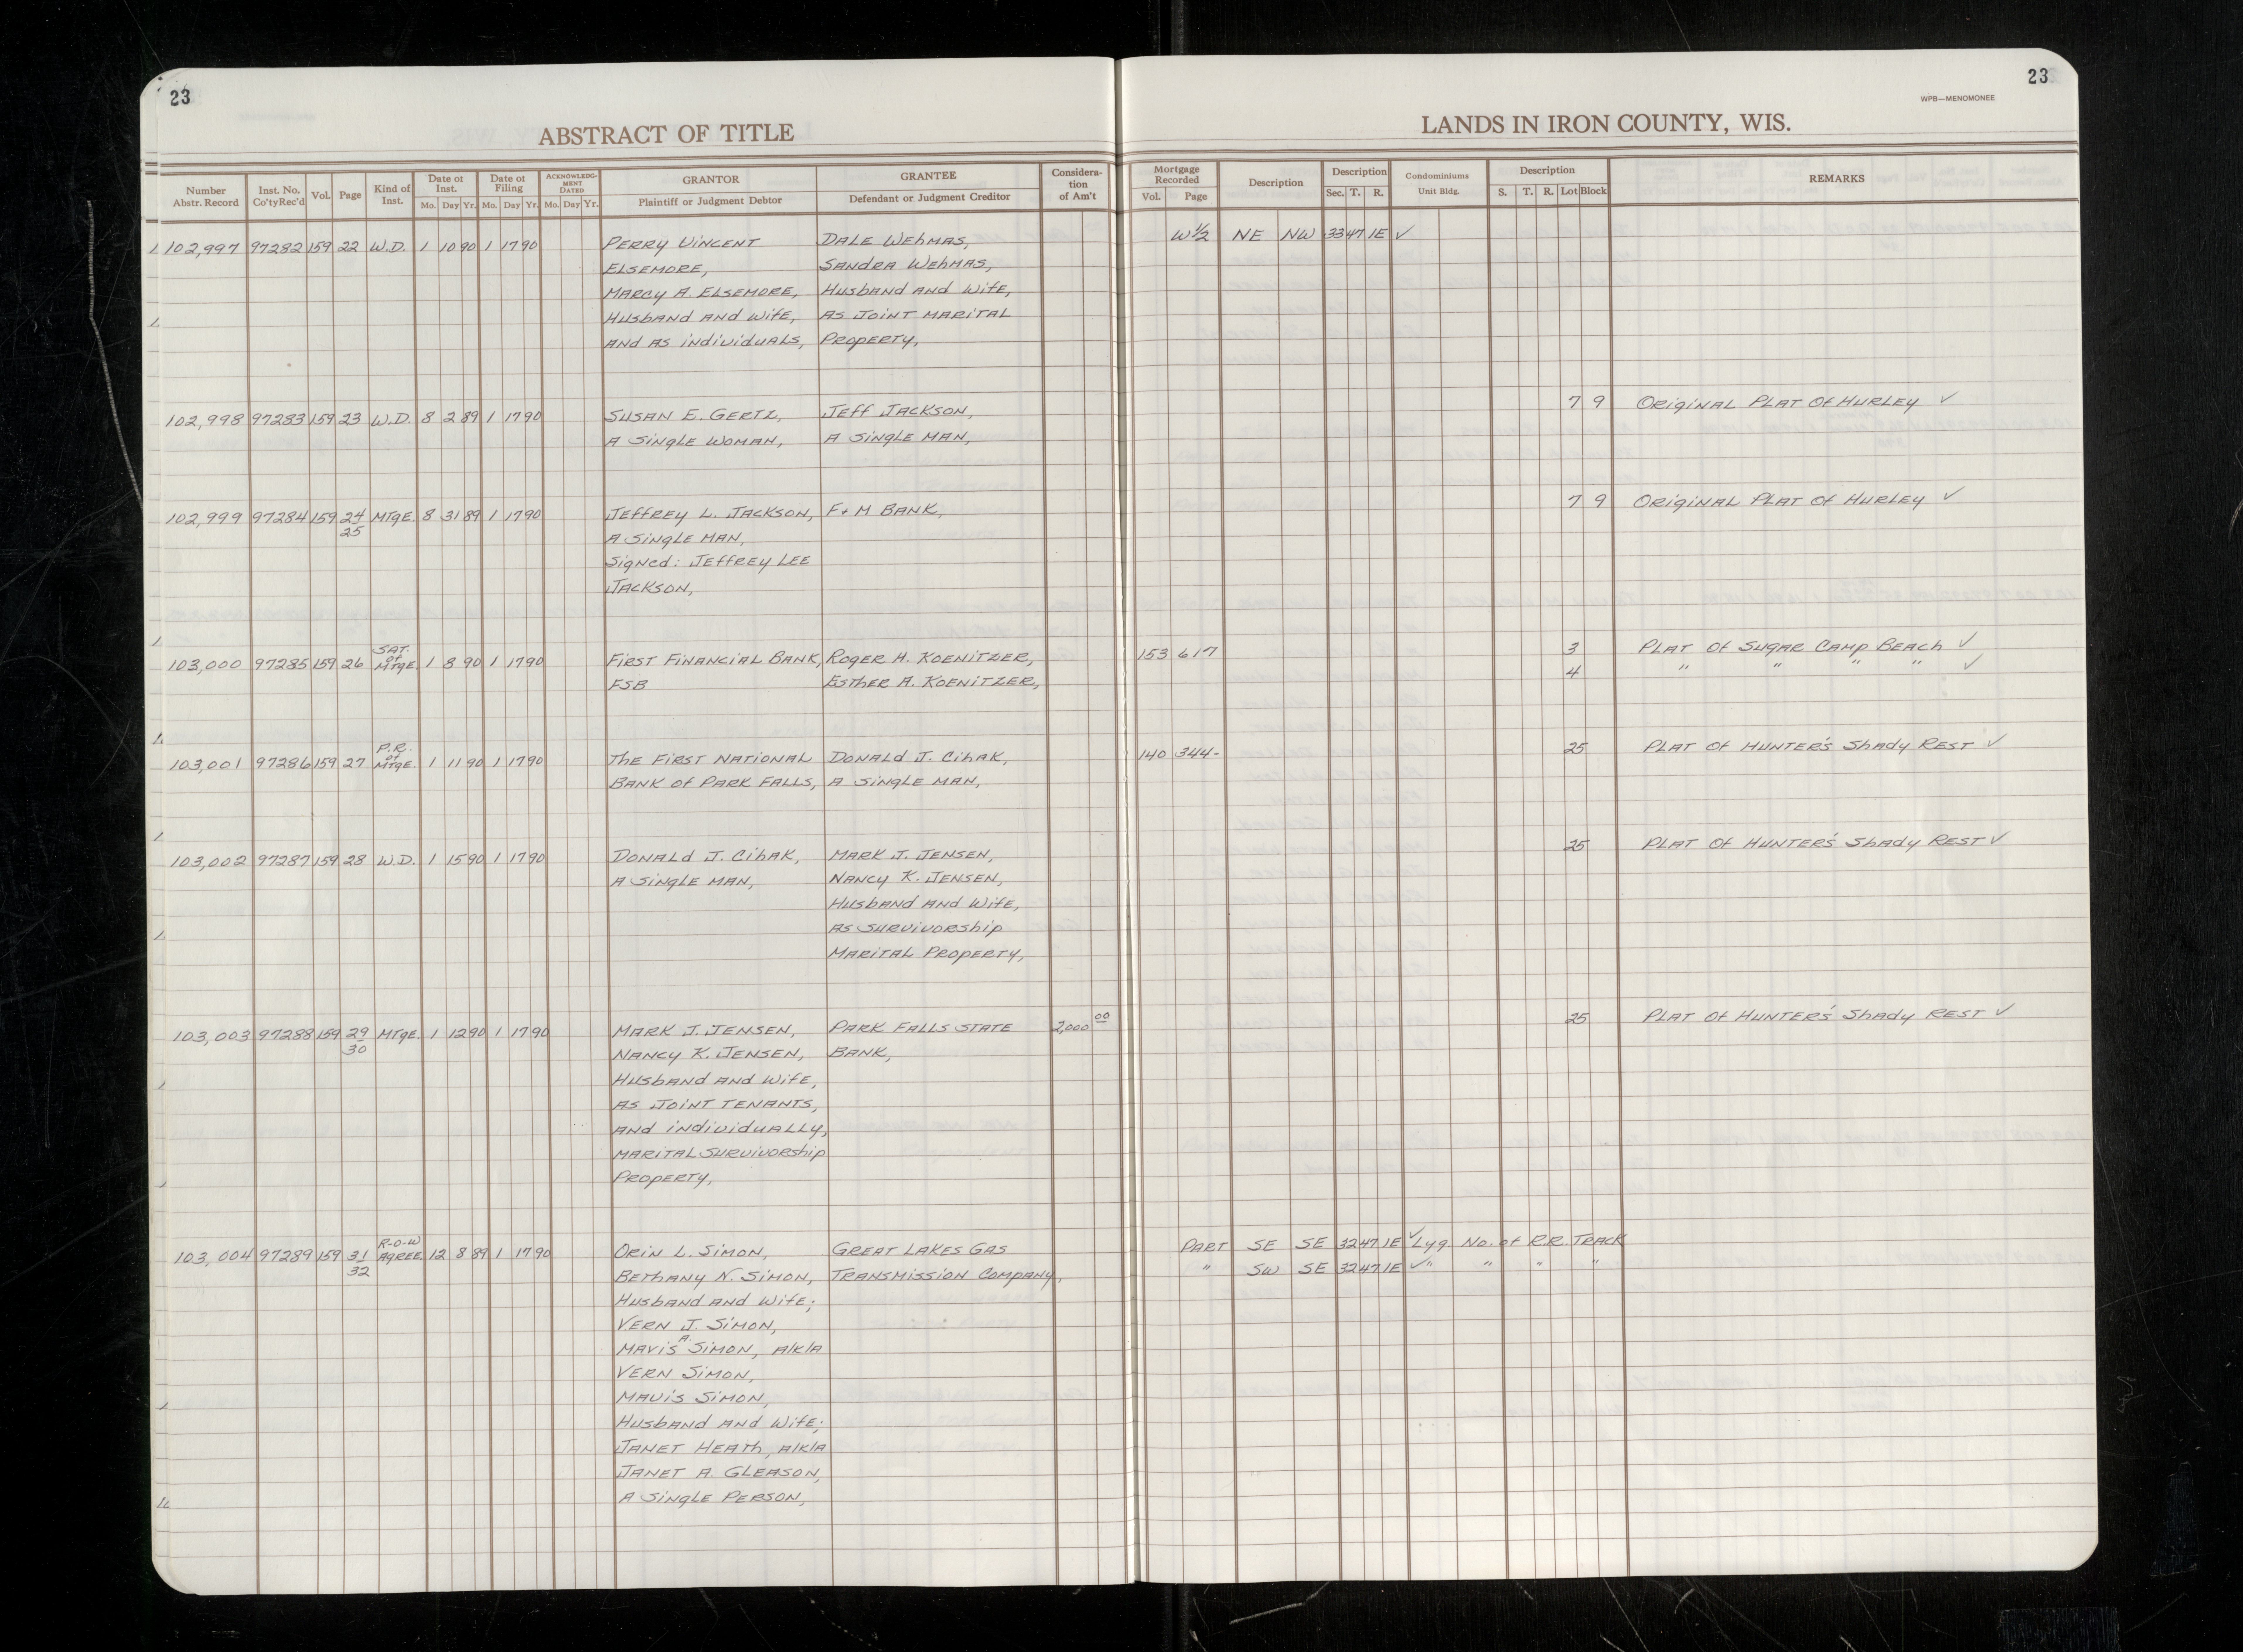 23
23
WPB—MENOMONEE
ABSTRACT OF TITLE
LANDS IN IRON COUNTY, WIS.
Number Abstr. Record | Inst. No. Co'ty Rec'd | Vol. | Page | Kind of Inst. | Date of Inst. Mo. Day Yr. | Date of Filing Mo. Day Yr. | ACKNOWLEDG-MENT DATED Mo. Day Yr. | GRANTOR Plaintiff or Judgment Debtor | GRANTEE Defendant or Judgment Creditor | Considera-tion of Am't | Mortgage Recorded Vol. Page | Description | Description Sec. T. R. | Condominiums Unit Bldg. | Description S. T. R. Lot Block | REMARKS
102,997 97282 159 22 W.D. 1 10 90 1 17 90 PERRY VINCENT DALE WEHMAS, W 1/2 NE NW 33 47 1E ✓
ELSEMORE, SANDRA WEHMAS,
MARCY A. ELSEMORE, HUSBAND AND WIFE,
HUSBAND AND WIFE, AS JOINT MARITAL
AND AS INDIVIDUALS, PROPERTY,
102,998 97283 159 23 W.D. 8 2 89 1 17 90 SUSAN E. GERTZ, JEFF JACKSON, 7 9 ORIGINAL PLAT OF HURLEY ✓
A SINGLE WOMAN, A SINGLE MAN,
102,999 97284 159 24 MTGE. 8 31 89 1 17 90 JEFFREY L. JACKSON, F+M BANK, 7 9 ORIGINAL PLAT OF HURLEY ✓
25 A SINGLE MAN,
SIGNED: JEFFREY LEE
JACKSON,
SAT. OF
103,000 97285 159 26 MTGE. 1 8 90 1 17 90 FIRST FINANCIAL BANK, ROGER H. KOENITZER, 153 617 3 PLAT OF SUGAR CAMP BEACH ✓
FSB ESTHER A. KOENITZER, 4 " " " " ✓
P.R. OF
103,001 97286 159 27 MTGE. 1 11 90 1 17 90 THE FIRST NATIONAL DONALD J. CIHAK, 140 344- 25 PLAT OF HUNTER'S SHADY REST ✓
BANK OF PARK FALLS, A SINGLE MAN,
103,002 97287 159 28 W.D. 1 15 90 1 17 90 DONALD J. CIHAK, MARK J. JENSEN, 25 PLAT OF HUNTER'S SHADY REST ✓
A SINGLE MAN, NANCY K. JENSEN,
HUSBAND AND WIFE,
AS SURVIVORSHIP
MARITAL PROPERTY,
103,003 97288 159 29 MTGE. 1 12 90 1 17 90 MARK J. JENSEN, PARK FALLS STATE 2,000 00 25 PLAT OF HUNTER'S SHADY REST ✓
30 NANCY K. JENSEN, BANK,
HUSBAND AND WIFE,
AS JOINT TENANTS,
AND INDIVIDUALLY,
MARITAL SURVIVORSHIP
PROPERTY,
R-O-W
103,004 97289 159 31 AGREE. 12 8 89 1 17 90 ORIN L. SIMON, GREAT LAKES GAS PART SE SE 32 47 1E ✓ Lyg. No. of R.R. TRACK
32 BETHANY N. SIMON, TRANSMISSION COMPANY, " SW SE 32 47 1E ✓ " " " "
HUSBAND AND WIFE;
VERN J. SIMON,
MAVIS A. SIMON, A/K/A
VERN SIMON,
MAVIS SIMON,
HUSBAND AND WIFE;
JANET HEATH, A/K/A
JANET A. GLEASON,
A SINGLE PERSON,